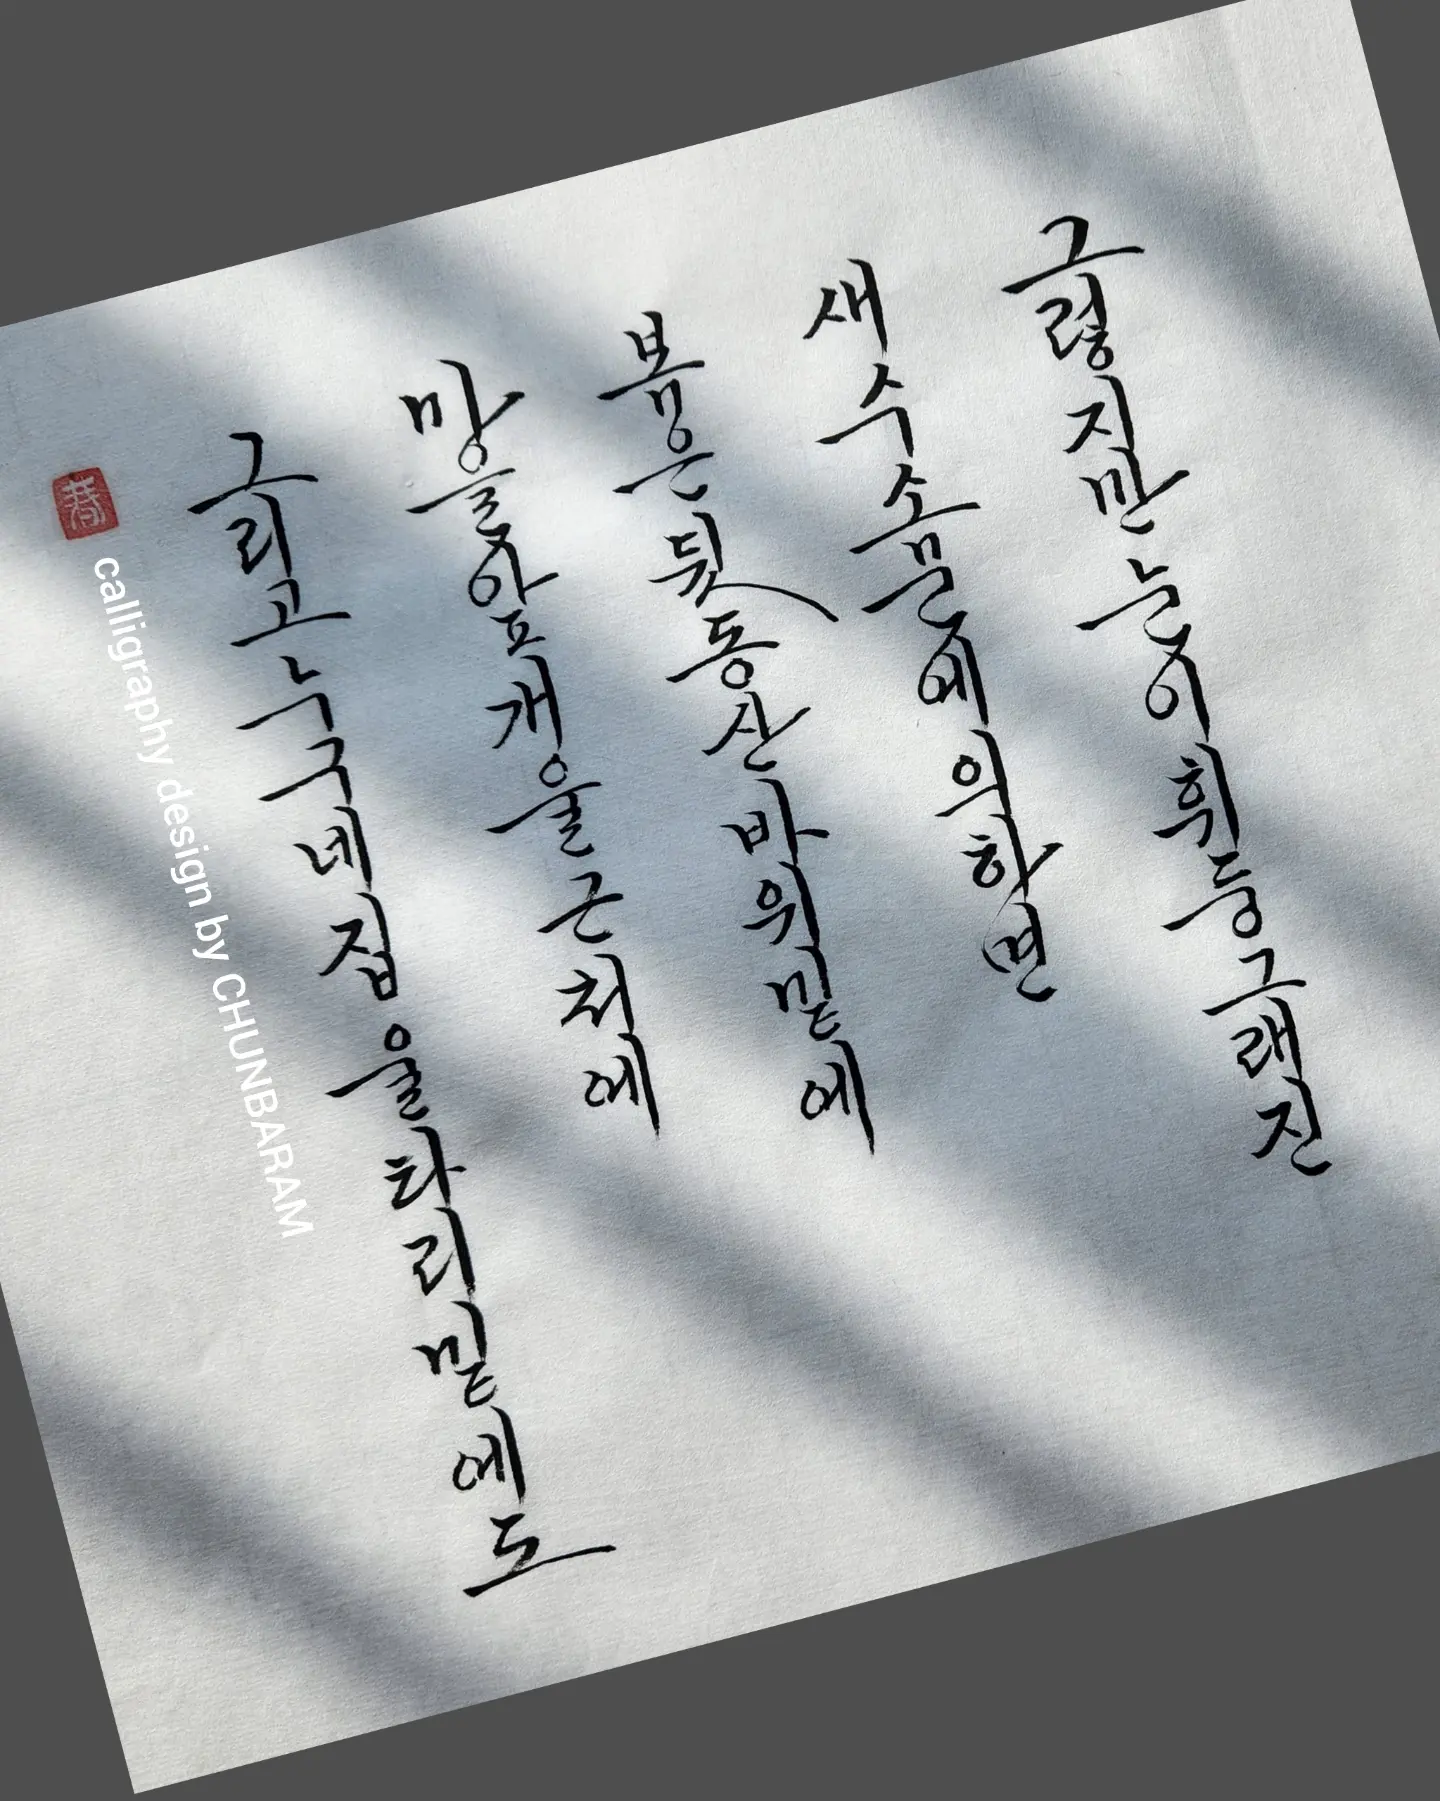 그렇지만 눈이 휘둥그래진
새 수소문에 의하면
봄은 뒷동산 바위 밑에
마을 앞 개울 근처에
그리고 누구네 집 울타리 밑에도
calligraphy design by CHUNBARAM